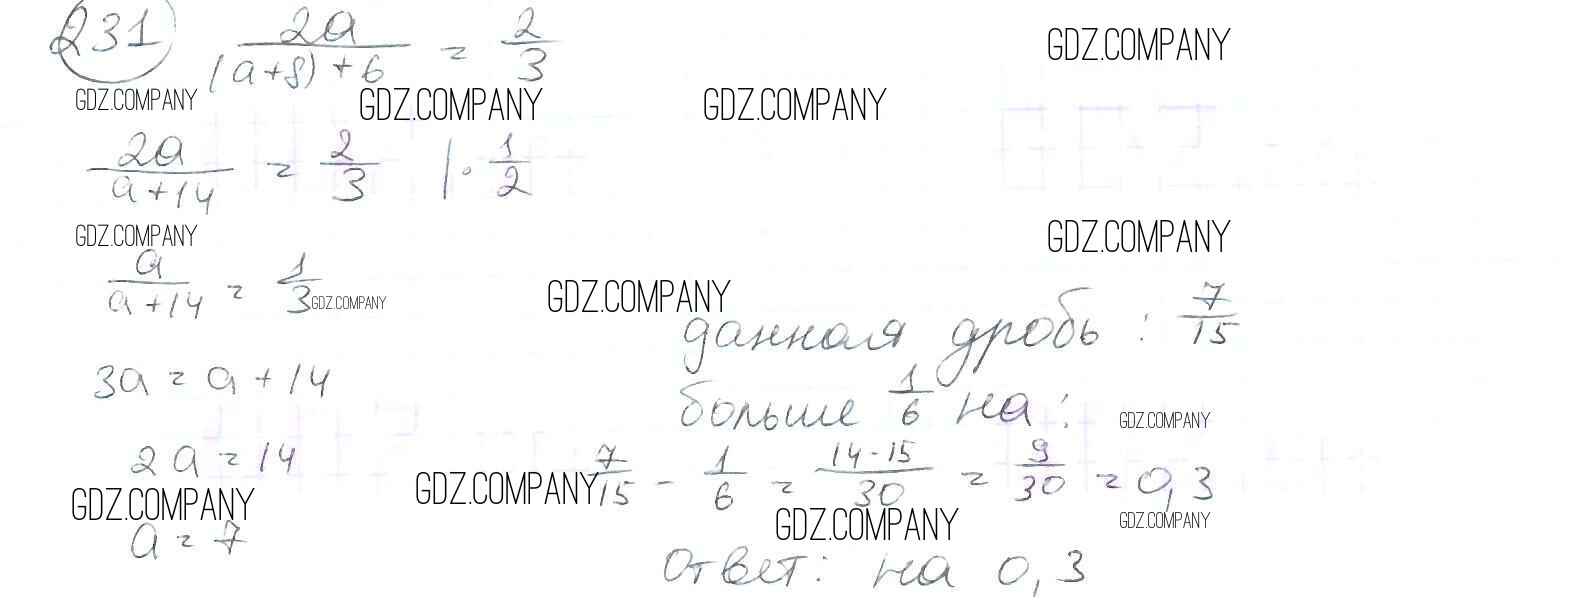 231 2a/((a+8)+6) = 2/3
GDZ.COMPANY
GDZ.COMPANY GDZ.COMPANY GDZ.COMPANY
2a/(a+14) = 2/3 |· 1/2
GDZ.COMPANY GDZ.COMPANY
a/(a+14) = 1/3
GDZ.COMPANY GDZ.COMPANY
данная дробь: 7/15
3a = a + 14
больше 1/6 на:
GDZ.COMPANY
2a = 14
7/15 - 1/6 = (14-15)/30 = 9/30 = 0,3
GDZ.COMPANY GDZ.COMPANY
GDZ.COMPANY GDZ.COMPANY
a = 7
Ответ: на 0,3